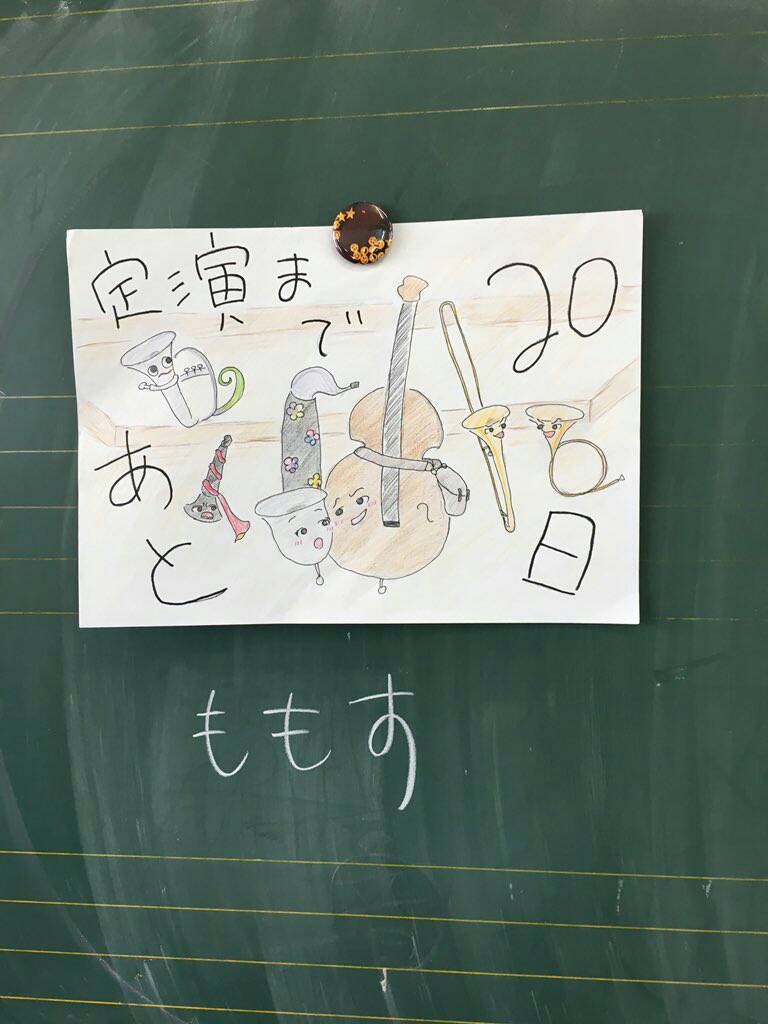 定演まで
あと
20
日
ももす